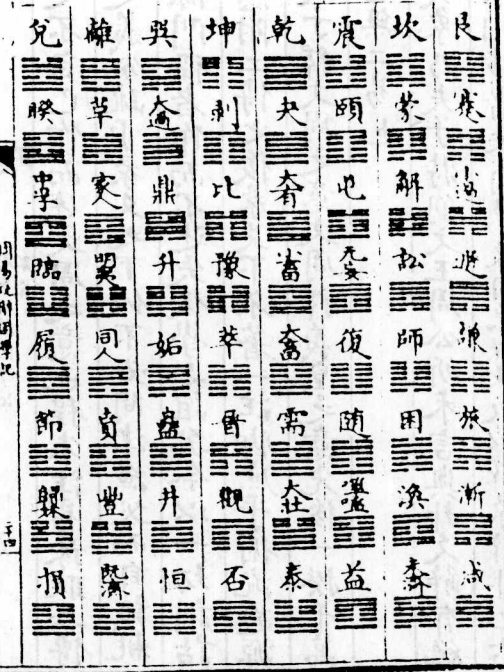 艮 蹇 小過 遯 謙 旅 漸 咸
坎 蒙 解 訟 師 困 渙 未濟
震 頤 屯 无妄 復 随 噬嗑 益
乾 夬 大有 小畜 大畜 需 大壯 泰
坤 剥 比 豫 萃 晉 觀 否
巽 大過 鼎 升 姤 蠱 井 恒
離 革 家人 明夷 同人 賁 豐 既濟
兌 睽 中孚 臨 履 節 歸妹 損
周易
二十四